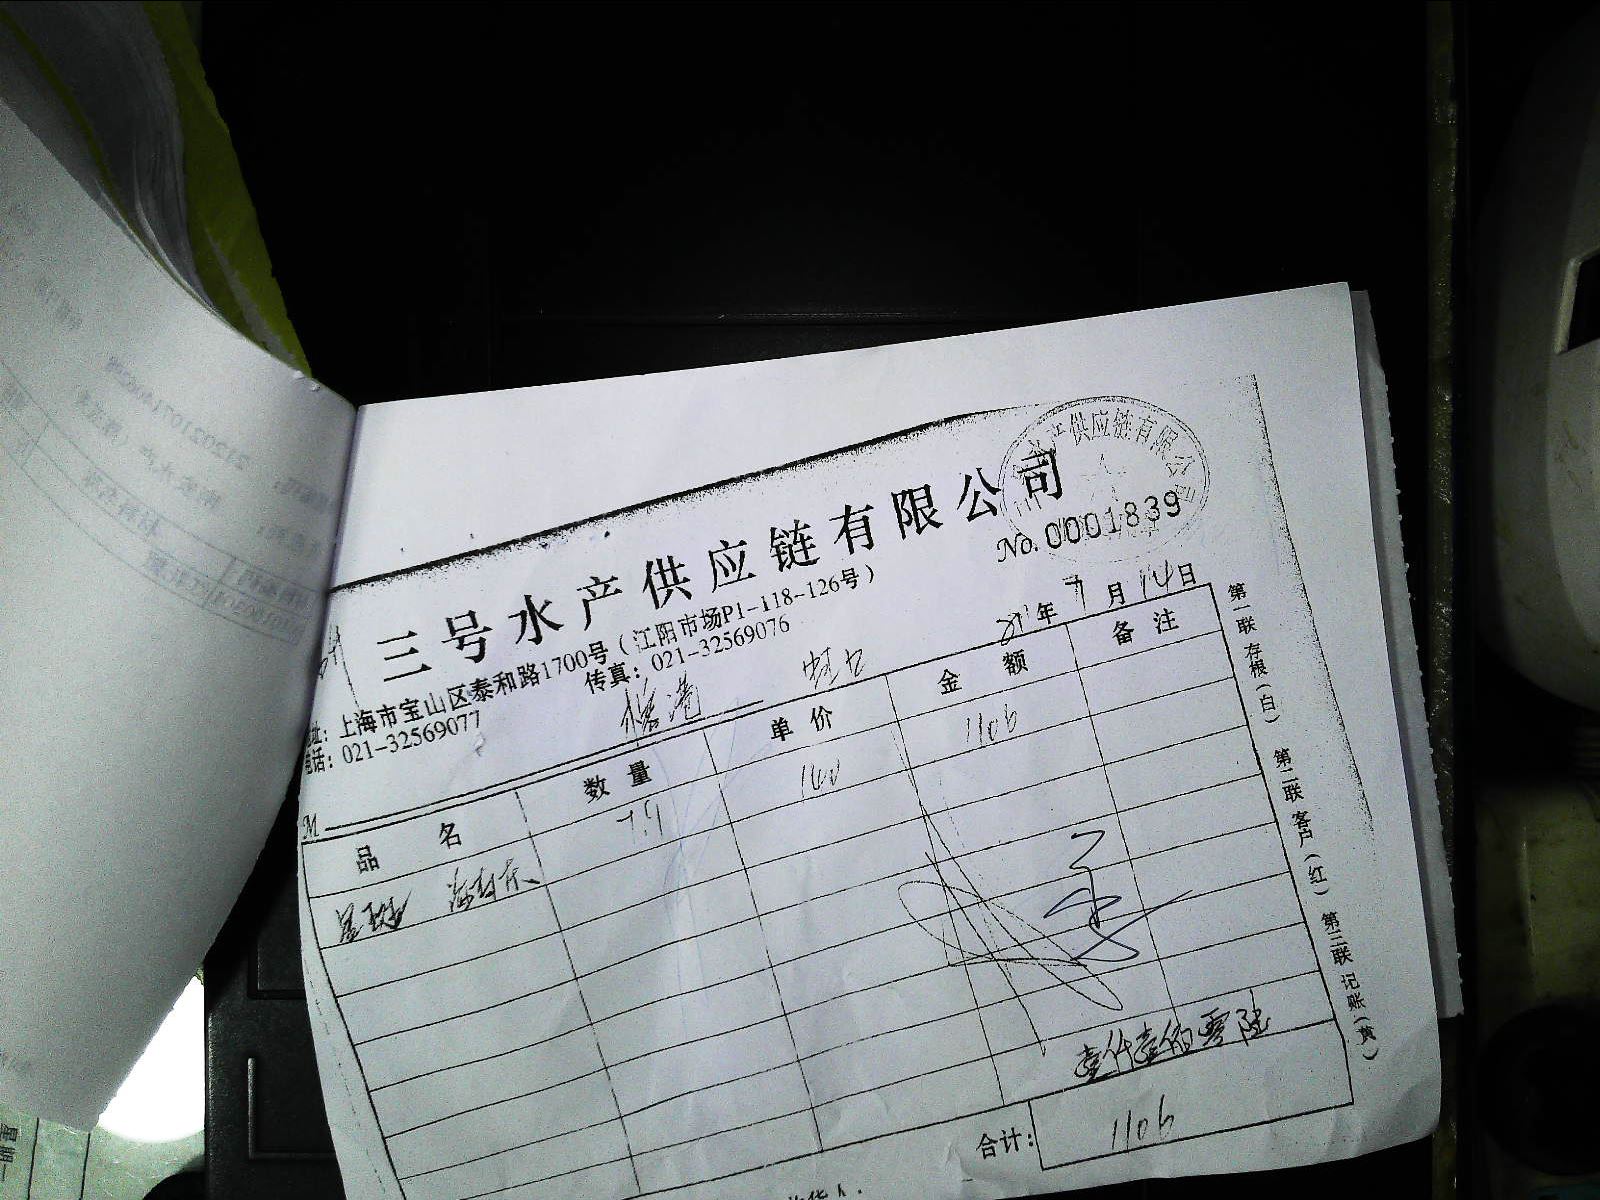 三号水产供应链有限公司
产供应链有限公司
No. 0001839
址：上海市宝山区泰和路1700号（江阳市场P1-118-126号）
电话：021-32569077 传真：021-32569076
21年7月14日
M
品名 数量 单价 金额 备注
星斑 7.9 140 1106
壹仟壹佰零陆
合计： 1106
第一联 存根（白） 第二联 客户（红） 第三联 记账（黄）